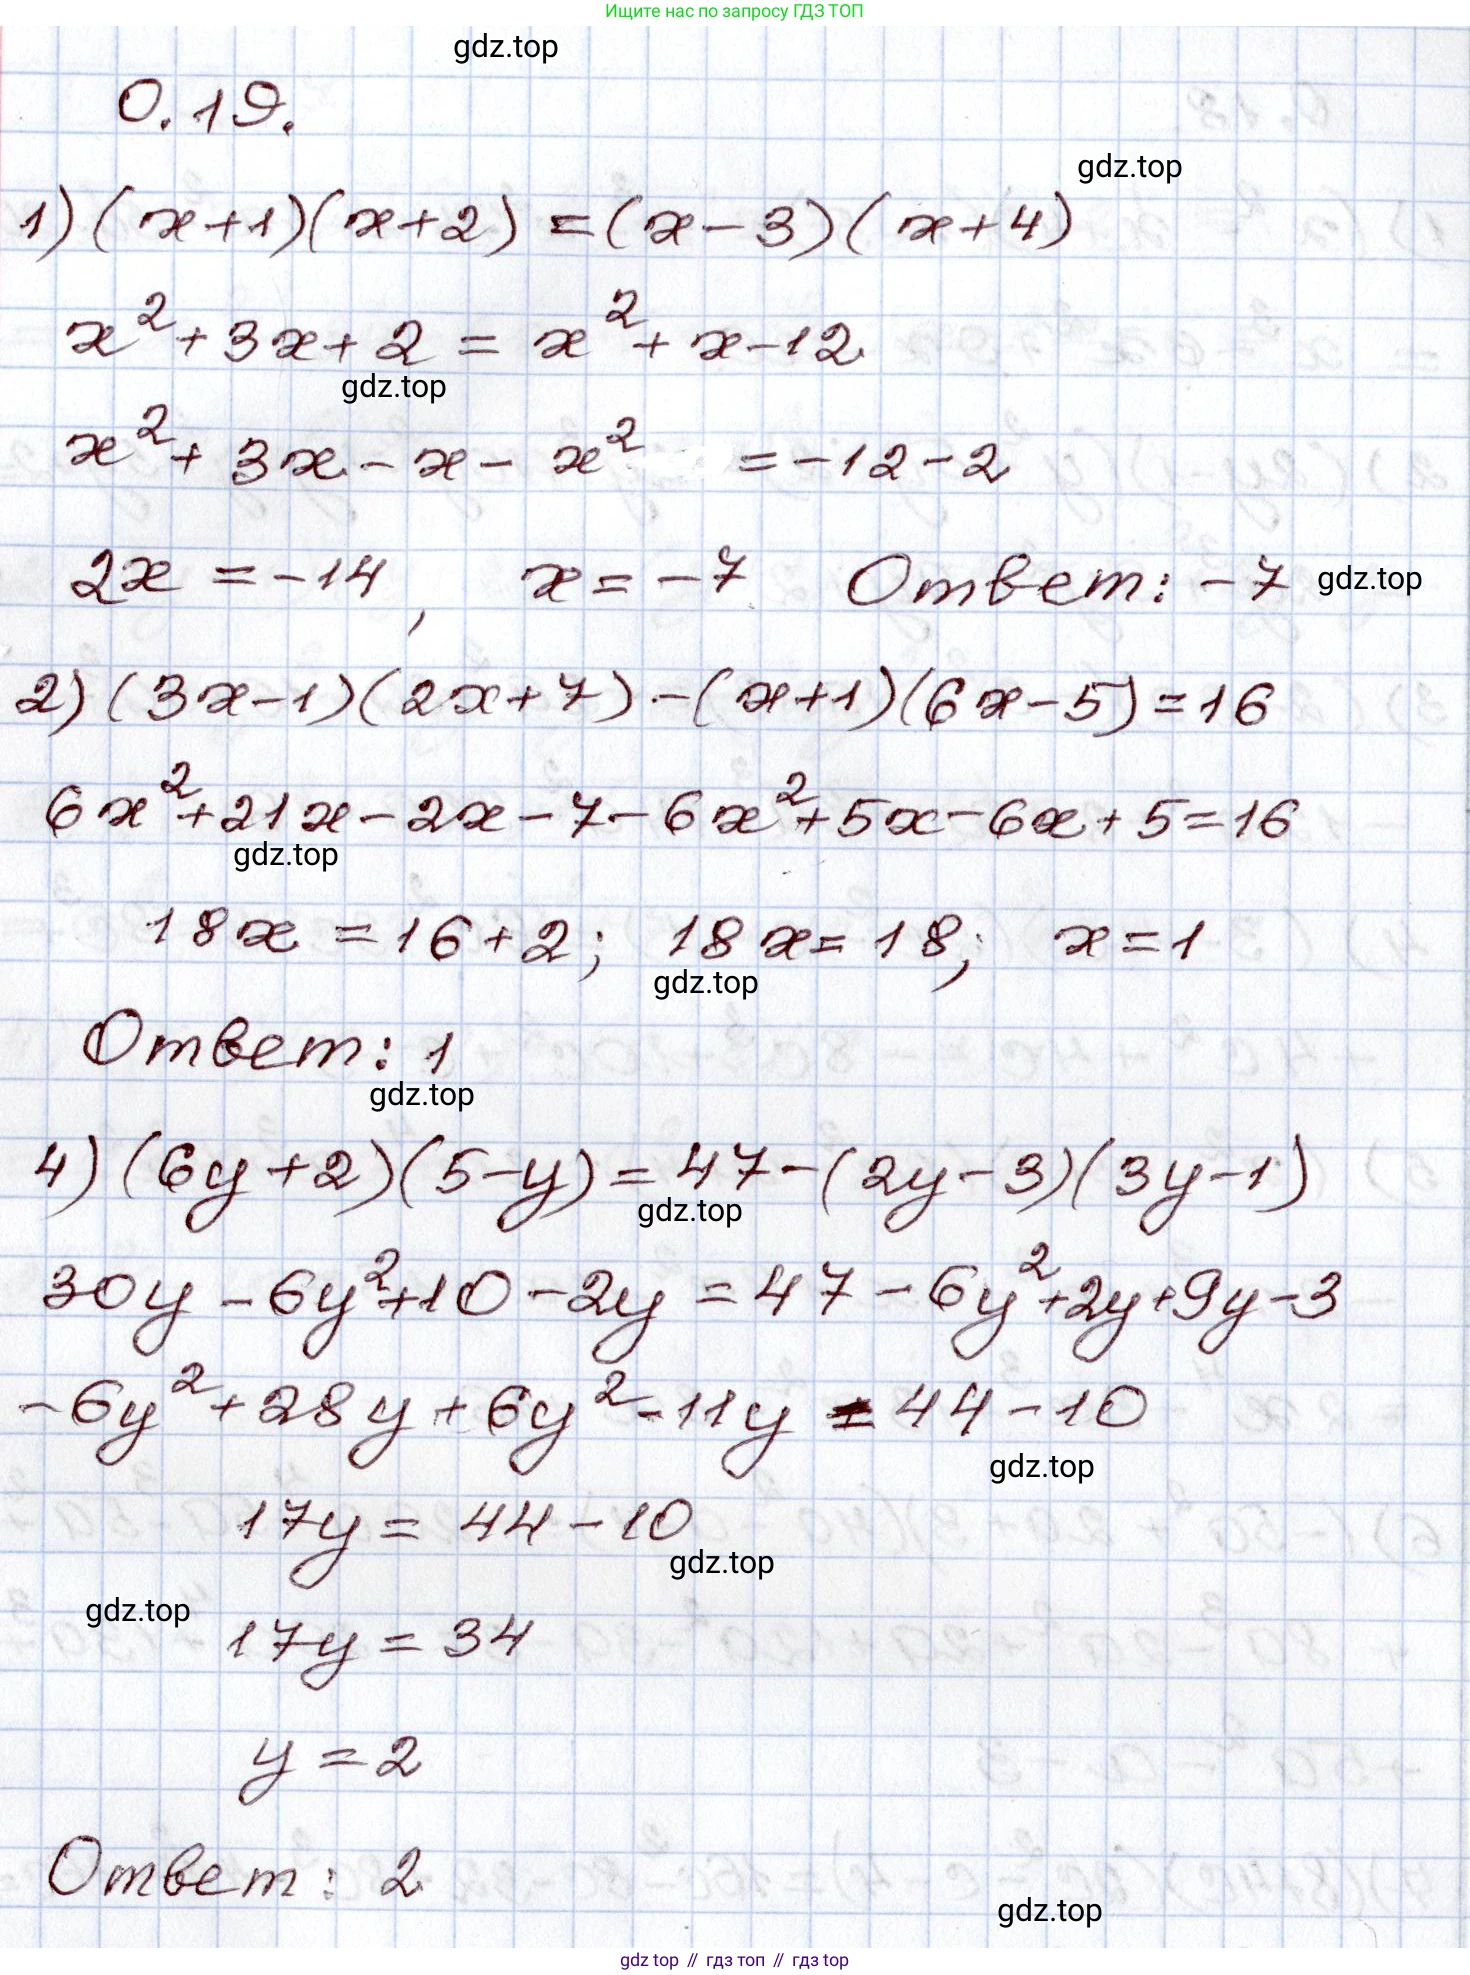 Ищите нас по запросу ГДЗ ТОП
gdz.top
0.19.
gdz.top
1) (x+1)(x+2) = (x-3)(x+4)
x²+3x+2 = x²+x-12
gdz.top
x²+3x-x-x² = -12-2
2x = -14, x = -7 Ответ: -7 gdz.top
2) (3x-1)(2x+7)-(x+1)(6x-5)=16
6x²+21x-2x-7-6x²+5x-6x+5=16
gdz.top
18x = 16+2; 18x = 18; x = 1
gdz.top
Ответ: 1
gdz.top
4) (6y+2)(5-y) = 47-(2y-3)(3y-1)
gdz.top
30y-6y²+10-2y = 47-6y²+2y+9y-3
-6y²+28y+6y²-11y = 44-10
gdz.top
17y = 44-10
gdz.top
gdz.top
17y = 34
y = 2
Ответ: 2
gdz.top
gdz top // гдз топ // гдз top